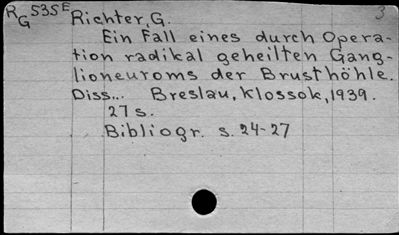 RG535E Richter, G. 3
Ein Fall eines durch Opera-
tion radikal geheilten Gang-
lioneuroms der Brusthöhle.
Diss... Breslau, Klossok, 1939.
27 s.
Bibliogr. s. 24-27